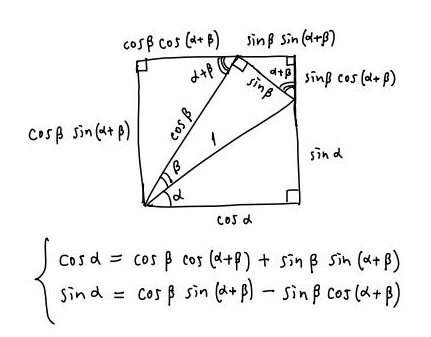 cosβ cos(α+β) sinβ sin(α+β)
α+β α+β sinβ cos(α+β)
sinβ
cosβ
cosβ sin(α+β) 1 sinα
β
α
cosα
cosα = cosβ cos(α+β) + sinβ sin(α+β)
sinα = cosβ sin(α+β) − sinβ cos(α+β)